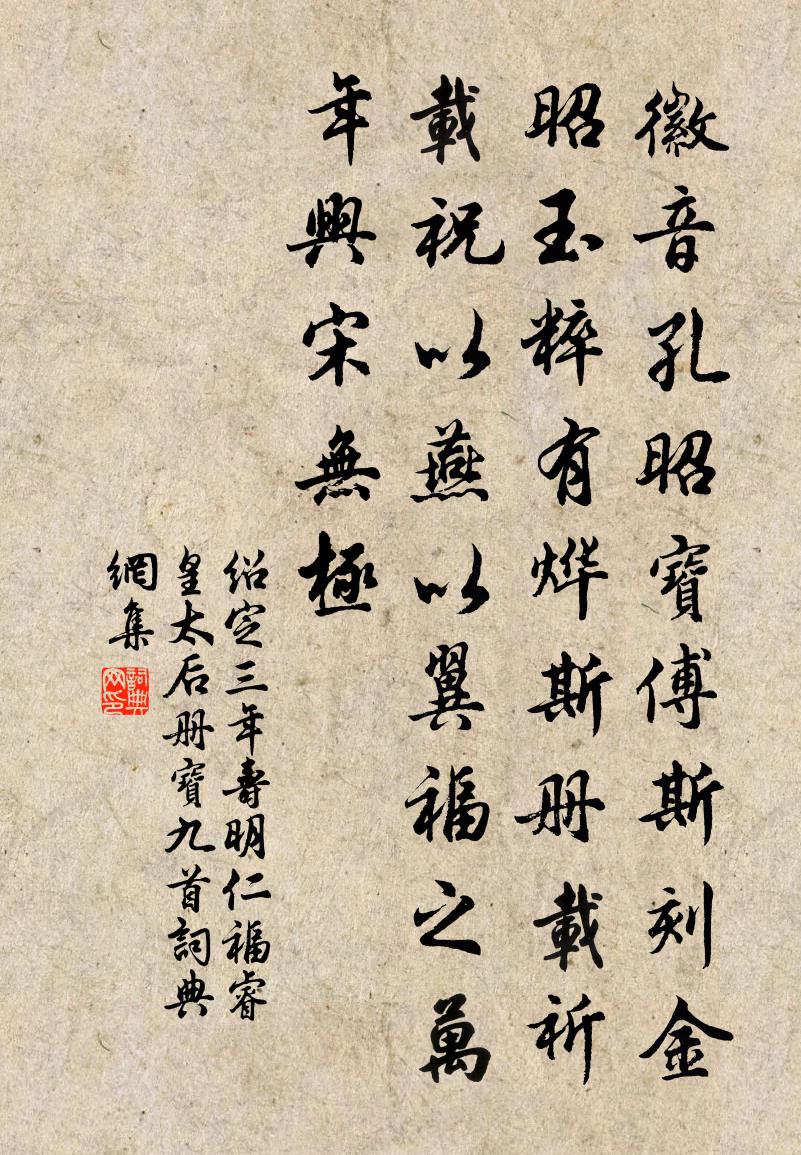 徽音孔昭寶傅斯刻金
昭玉粹有燁斯册載祈
載祝以燕以翼福之萬
年興宋無極
紹定三年壽明仁福睿
皇太后册寶九首詞典
網集
詞典
网印